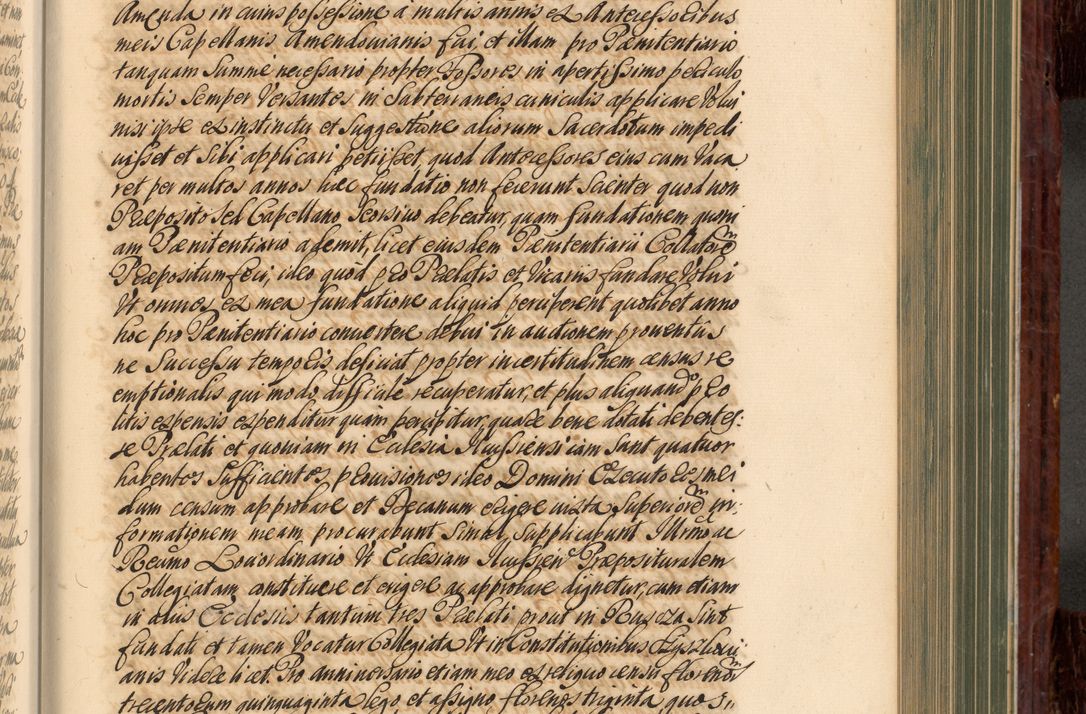 Amenda in cuius possessione à multis annis ex Antecessoribus
meis Capellanis Amendouianis fui, et illam pro Pænitentiario
tanquam summè necessario propter Fossores in apertissimo periculo
mortis semper versantes in subterraneis cuniculis applicare volui
nisi ipse ex instinctu et suggestione aliorum Sacerdotum impedi
uisset et sibi applicari petiisset, quod Antecessores eius cum vaca
ret per multos annos hæc fundatio non fecerunt scienter quod non
Præposito sed Capellano seorsiuo debeatur, quam fundationem quoni
am Pænitentiario ademit, licet eiusdem Pænitentiarii Collatorem
Præpositum feci, ideo quòd pro Prælatis et Vicariis fundare volui
Vt omnes ex mea fundatione aliquid perciperent quolibet anno
hoc pro Pænitentiario conuertere debui in auctionem prouentus
ne successu temporis deficiat propter incertitudinem census re
emptionalis qui modo difficulè recuperatur, et plus aliquando pro
litis expensis expenditur quàm percipitur, quare bene dotati debent es:
se Prælati et quoniam in Ecclesia Ilkussiensi iam sant quatuor
habentes sufficientes prouisiones ideo Domini Executores mei
dum censum approbare et Decanum erigere iuxta superiorem in:
formationem meam procurabunt simul supplicabunt Illrmo ac
Reumo Loci ordinario Vt Ecclesiam Ilkussien: Præposituralem
Collegiatam constituere et erigere ac approbare dignetur, cum etiam
in aliis Ecclesiis tantum tres Prælati prout in sint
fundati et tamen vocatur Collegiata Vt in Constitutionibus
anis videre licet. Pro anniuersario etiam meo ex reliquo censu florenos
trecentorum quinquaginta lego et assigno florenos triginta quos